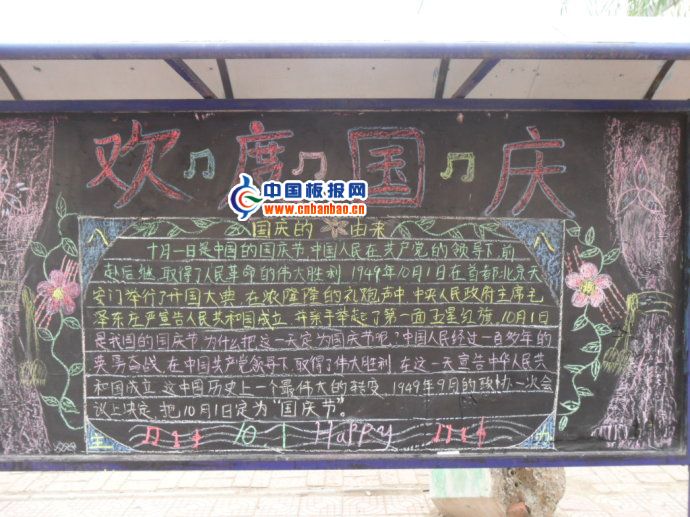 欢度国庆
中国板报网
www.cnbanbao.cn
国庆的由来
十月一日是中国的国庆节.中国人民在共产党的领导下.前
赴后继.取得了人民革命的伟大胜利.1949年10月1日在首都北京天
安门举行了开国大典.在浓隆隆的礼炮声中.中央人民政府主席毛
泽东庄严宣告人民共和国成立.并亲手举起了第一面五星红旗.10月1日
是我国的国庆节.为什么把这一天定为国庆节呢?中国人民经过一百多年的
英勇奋战.在中国共产党领导下.取得了伟大胜利.在这一天宣告中华人民共
和国成立.这中国历史上一个最伟大的转变.1949年9月的政协一次会
议上决定.把10月1日定为"国庆节"。
八 八
10 1 Happy